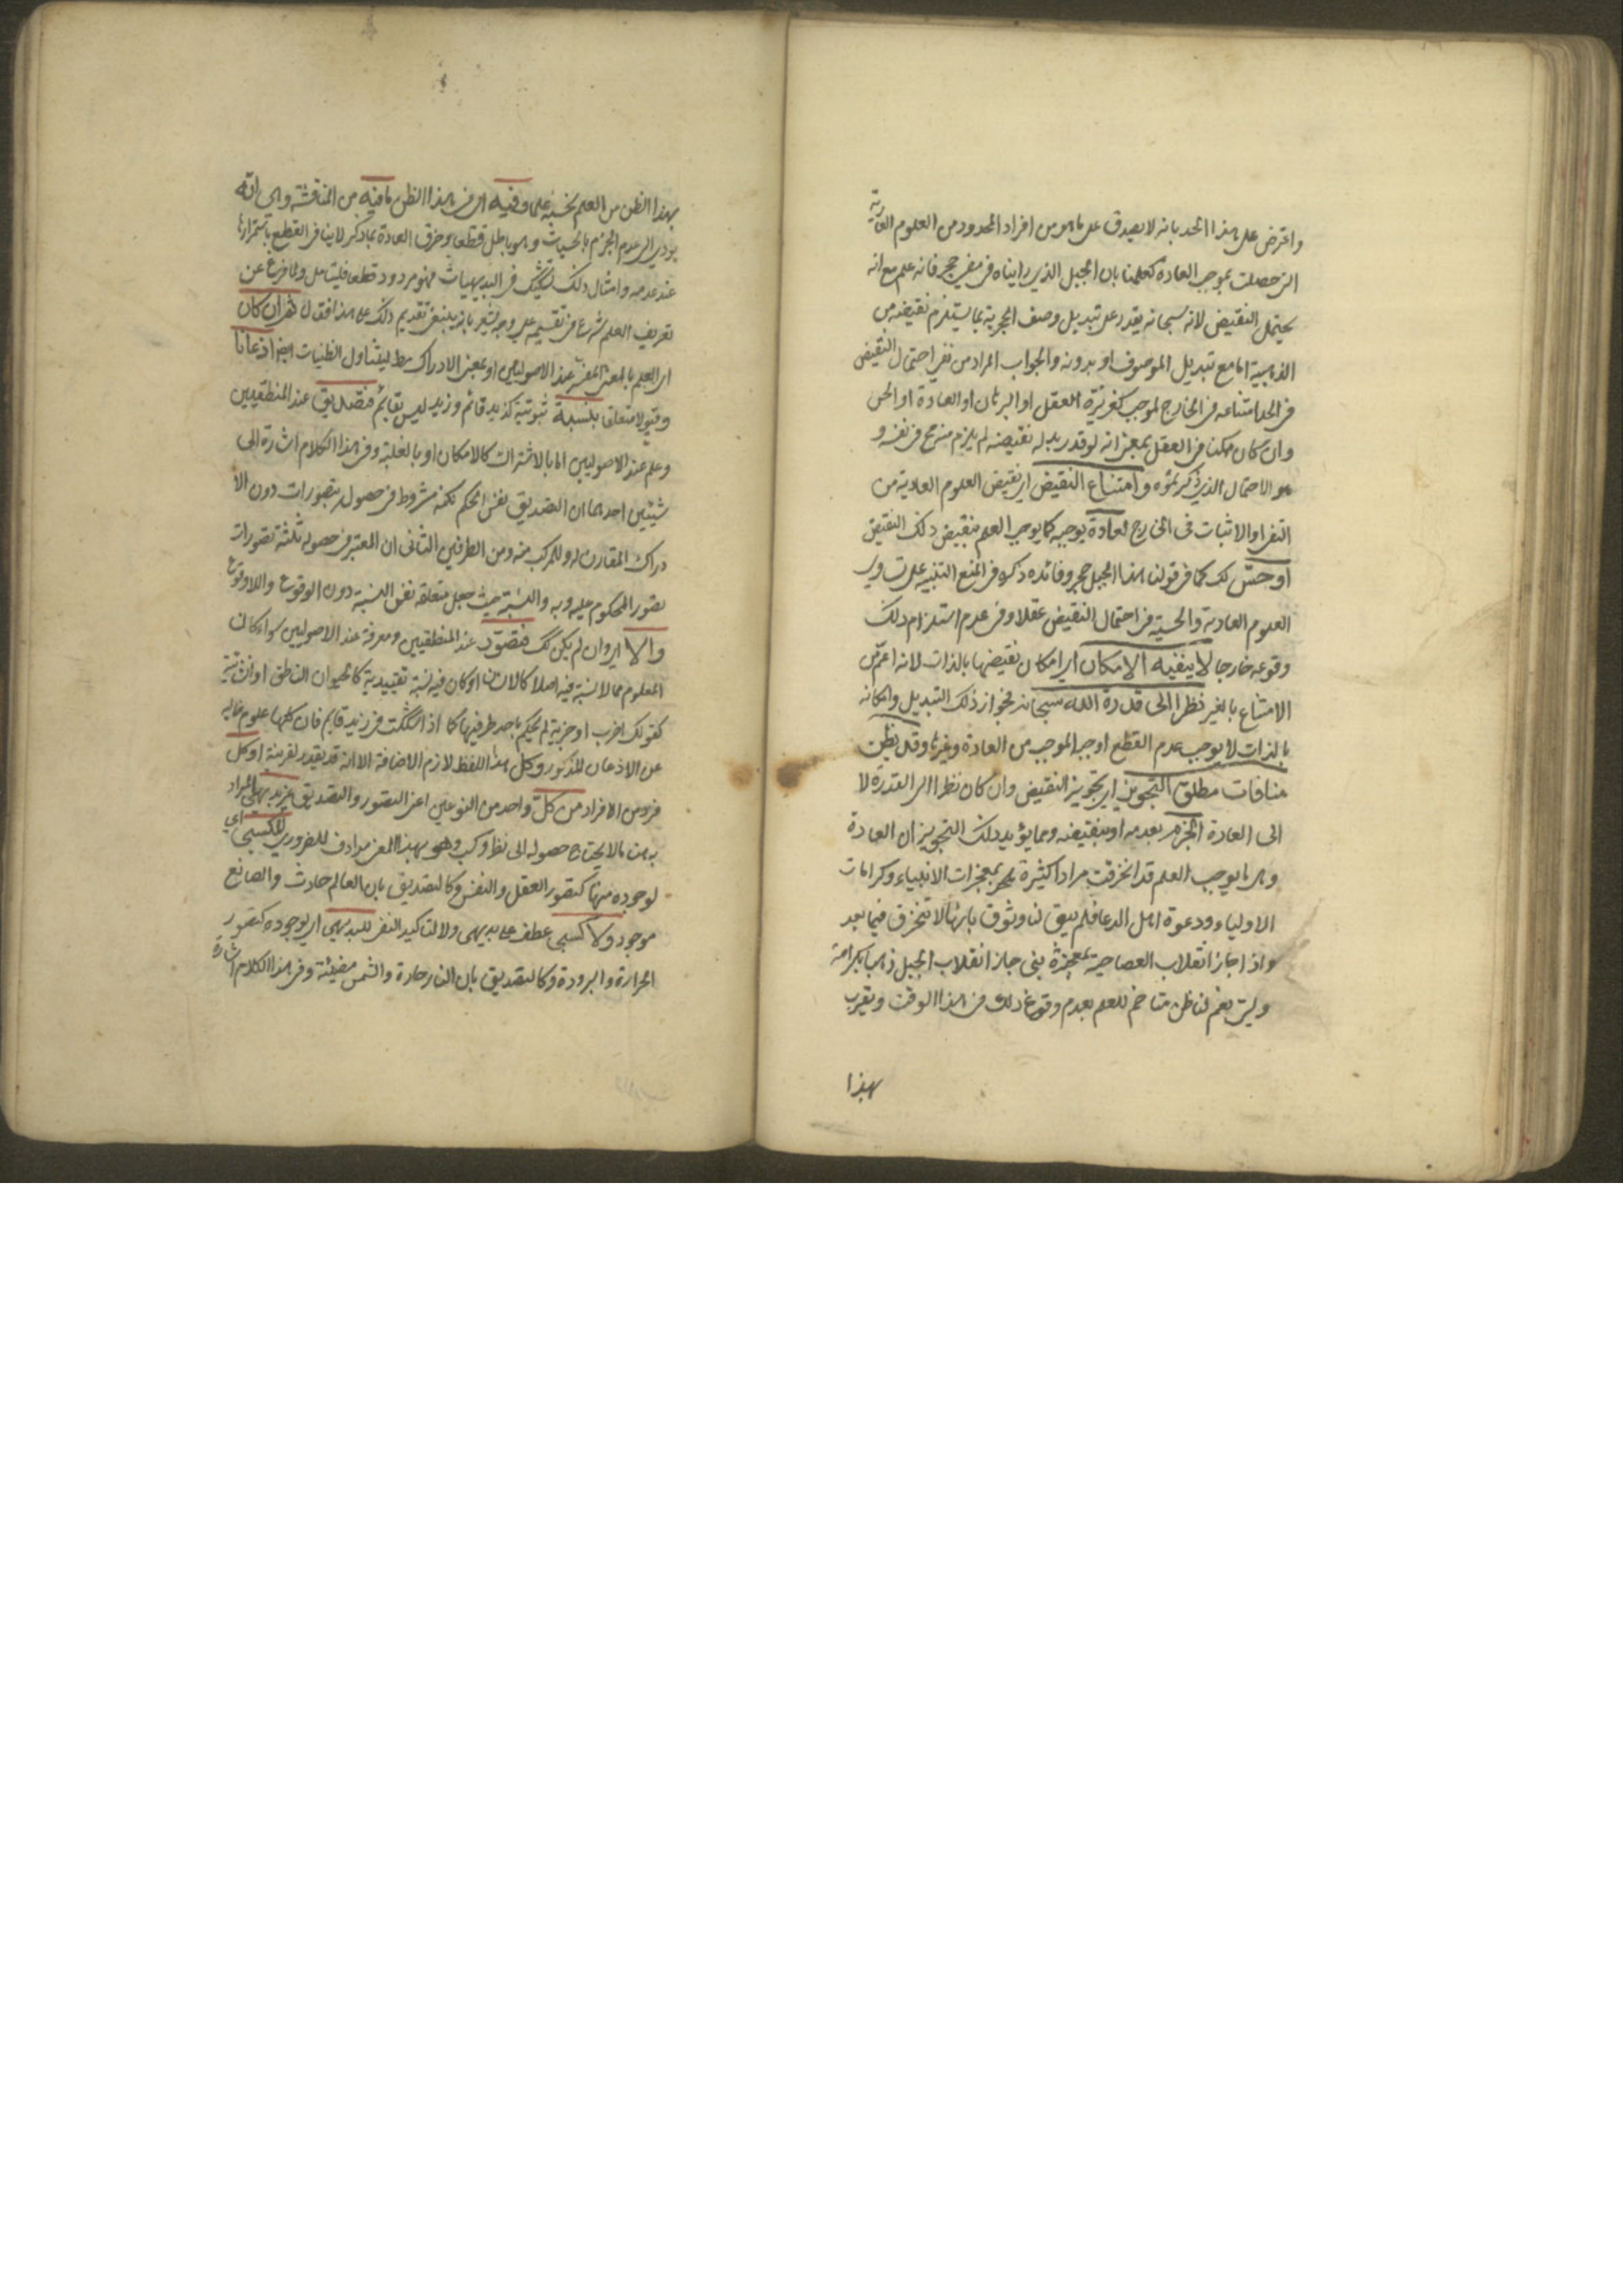 واعترض على هذا الحد بانه لا يصدق على ما هو من افراد المحدود من العلوم العادية
التي حصلت بموجب العادة كعلمنا بان الجبل الذي رايناه فيما مضى حجر فانه علم مع انه
يحتمل النقيض لانه سبحانه يقدر على تبديل وصف الحجرية بما يستلزم نقيضه من
الذهبية اما مع تبديل الموصوف او بدونه والجواب المراد من نفي احتمال النقيض
في الحد امتناعه في الخارج لموجب كغريزة العقل او البرهان او العادة او الحس
وان كان ممكنا في العقل بمعنى انه لو قدر بدله نقيضه لم يلزم منه مح في نفسه و
هو الاحتمال الذي ذكرتموه وامتناع النقيض اي نقيض العلوم العادية من
النفي او الاثبات في الخارج لعادة يوجبه كما يوجب العلم بنقيض ذلك النقيض
او حس لك كما في قولنا هذا الجبل حجر وفائدة ذكره في المنع التنبيه على تساوي
العلوم العادية والحسية في احتمال النقيض عقلا وفي عدم استلزام ذلك
وقوعه خارجا لا ينفيه الامكان اي امكان نقيضها بالذات لانه اعم من
الامتناع بالغير نظرا الى قدرة الله سبحانه فجواز ذلك التبديل وامكانه
بالذات لا يوجب عدم القطع اوجبه الموجب من العادة وغيرها وقد يظن
منافات مطلق التجويز اي تجويز النقيض وان كان نظرا الى القدرة لا
الى العادة الجزم بعدمه او بنقيضه ومما يؤيد ذلك التجويز ان العادة
وهي ما يوجب العلم قد انخرقت مرارا كثيرة بمعجزات الانبياء وكرامات
الاولياء ودعوة اهل الدعا فلم يبق لنا وثوق بانها لا تنخرق فيما بعد
واذا جاز انقلاب العصا حية بمعجزة نبي جاز انقلاب الجبل ذهبا بكرامة
ولي نعم لنا ظن متاخم للعلم بعدم وقوع ذلك في هذا الوقت ويقرب
بهذا
بهذا الظن من العلم نحسبه علما وفيه اي في هذا الظن ما فيه من المناقشة وهي انه
يؤدي الى عدم الجزم بالحسيات وهو باطل قطعا وخرق العادة بما ذكر لا ينافي القطع باستمرارها
عند عدمه وامثال ذلك تشكيك في البديهيات فهو مردود قطعا فليتامل ولما فرغ عن
تعريف العلم شرع في تقسيمه على وجه يشعر بانه ينبغي تقديم ذلك على هذا فقال هو ان كان
اي العلم بالمعنى المفسر عند الاصوليين او بمعنى الادراك مط ليتناول الظنيات ايضا اذعانا
وقبولا متعلقا بنسبة ثبوتية كزيد قائم وزيد ليس بقائم فتصديق عند المنطقيين
وعلم عند الاصوليين اما بالاشتراك كالامكان او بالغلبة وفي هذا الكلام اشارة الى
شيئين احدهما ان التصديق نفس الحكم لكنه مشروط في حصوله بتصورات دون الا
دراك المقارن له والمركب منه ومن الطرفين الثاني ان المعتبر في حصوله ثلثة تصورات
تصور المحكوم عليه وبه والنسبة حيث جعل متعلقه نفس النسبة دون الوقوع واللاوقوع
والا اي وان لم يكن لك فتصور عند المنطقيين ومعرفة عند الاصوليين سواء كان
المعلوم مما لا نسبة فيه اصلا كالانسان او كان فيه نسبة تقييدية كالحيوان الناطق او انشائية
كقولك اضرب او خبرية لم يحكم باحد طرفيها كما اذا شككت في زيد قايم فان كلها علوم خالية
عن الاذعان المذكور وكل هذا اللفظ لازم الاضافة الا انه قد يقدر لقرينة او كل
فرد من الافراد من كل واحد من النوعين اعني التصور والتصديق بديهي المراد
به هنا ما لا يحتاج حصوله الى نظر وكسب وهو بهذا المعنى مرادف للضروري كسبي اي
لوجوده منها كتصور العقل والنفس وكالتصديق بان العالم حادث والصانع
موجود ولا كسبي عطف على بديهي ولا لتاكيد النفي للبديهي اي لوجوده كتصور
الحرارة والبرودة وكالتصديق بان النار حارة والشمس مضيئة وفي هذا الكلام اشارة